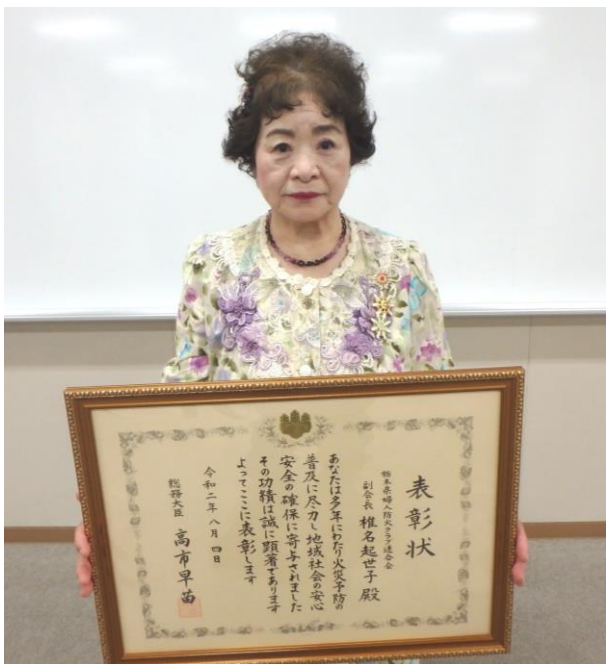 表彰状
栃木県婦人防火クラブ連合会
副会長 椎名起世子殿
あなたは多年にわたり火災予防の
普及に尽力し地域社会の安心
安全の確保に寄与されました
その功績は誠に顕著であります
よってここに表彰します
令和二年八月四日
総務大臣 高市早苗